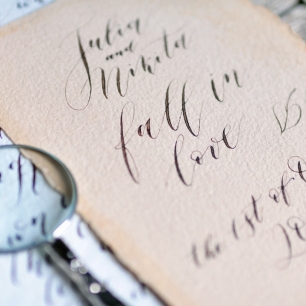 Julia
and
Nikita
fall in
love
the 1st of